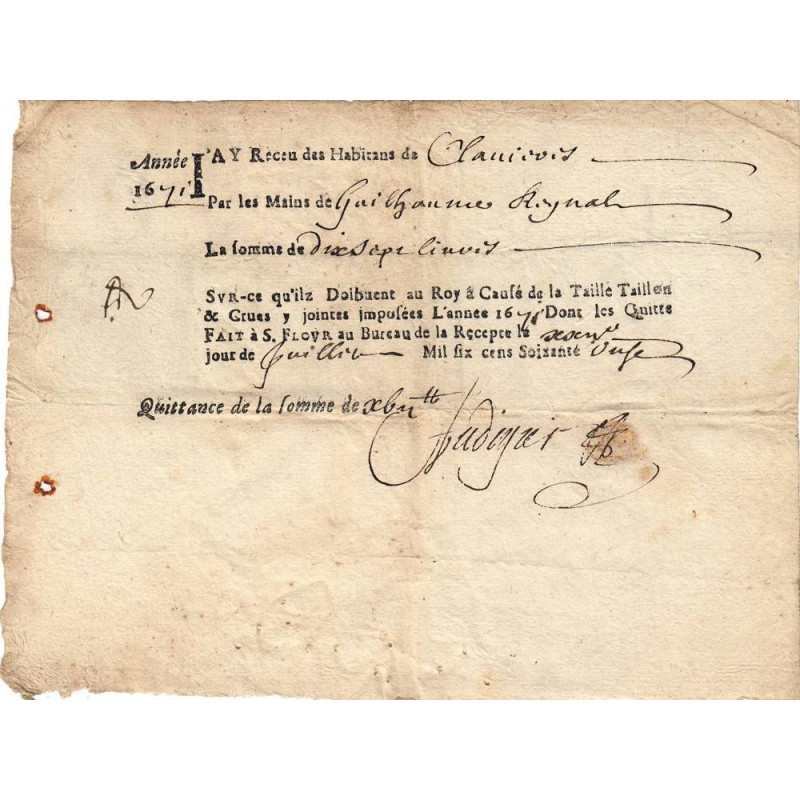 Année
1671
I'AY Receu des Habitans de Clauieres
Par les Mains de Guilhaume Reynal
La somme de dix sept liures
SVR-ce qu'ilz Doibuent au Roy à Causé de la Taille Taillon
& Crues y jointes imposées L'année 1671 Dont les Quitte
FAIT à S. FLOVR au Bureau de la Recepte le
jour de Juillet Mil six cens Soixante Unse
Quittance de la somme de xbii tt